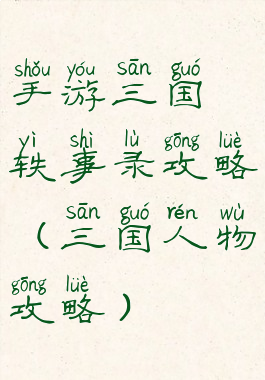 shǒu yóu sān guó
手游三国
yì shì lù gōng lüè
轶事录攻略
sān guó rén wù
（三国人物
gōng lüè
攻略）